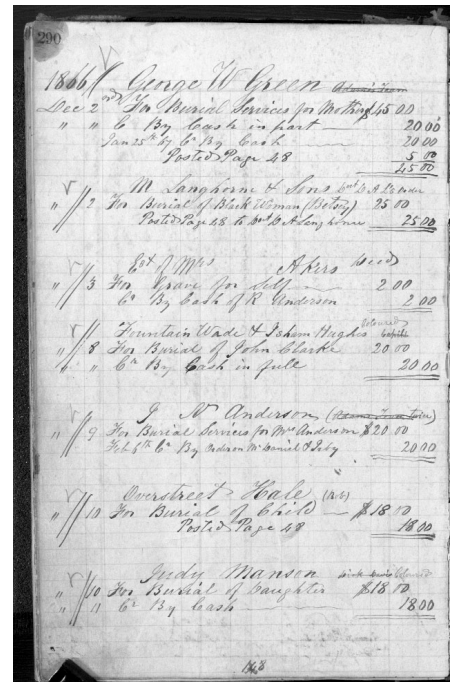 290
1866 George W Green
Dec 2 For Burial Services for Mother $45 00
" " Cr By Cash in part 20 00
Jan 25th 67 Cr By Cash 20 00
Posted Page 48 5 00
45 00
M Langhorne & Sons
" 2 For Burial of Black Woman (Betsey) 25 00
Posted Page 48 to Langhorne 25 00
Est of Mrs Akers Decd
" 3 For Grave for self 2 00
Cr By Cash of R Anderson 2 00
Fountain Wade & Hughes Coloured
" 8 For Burial of John Clarke 20 00
" " Cr By Cash in full 20 00
J N Anderson
" 9 For Burial Services for Mrs Anderson $20 00
Feb 6th Cr By Order on McDaniel & Irby 20 00
Overstreet Hale
" 10 For Burial of Child $18 00
Posted Page 48 18 00
Judy Manson Coloured
" 10 For Burial of Daughter $18 00
" 11 Cr By Cash 18 00